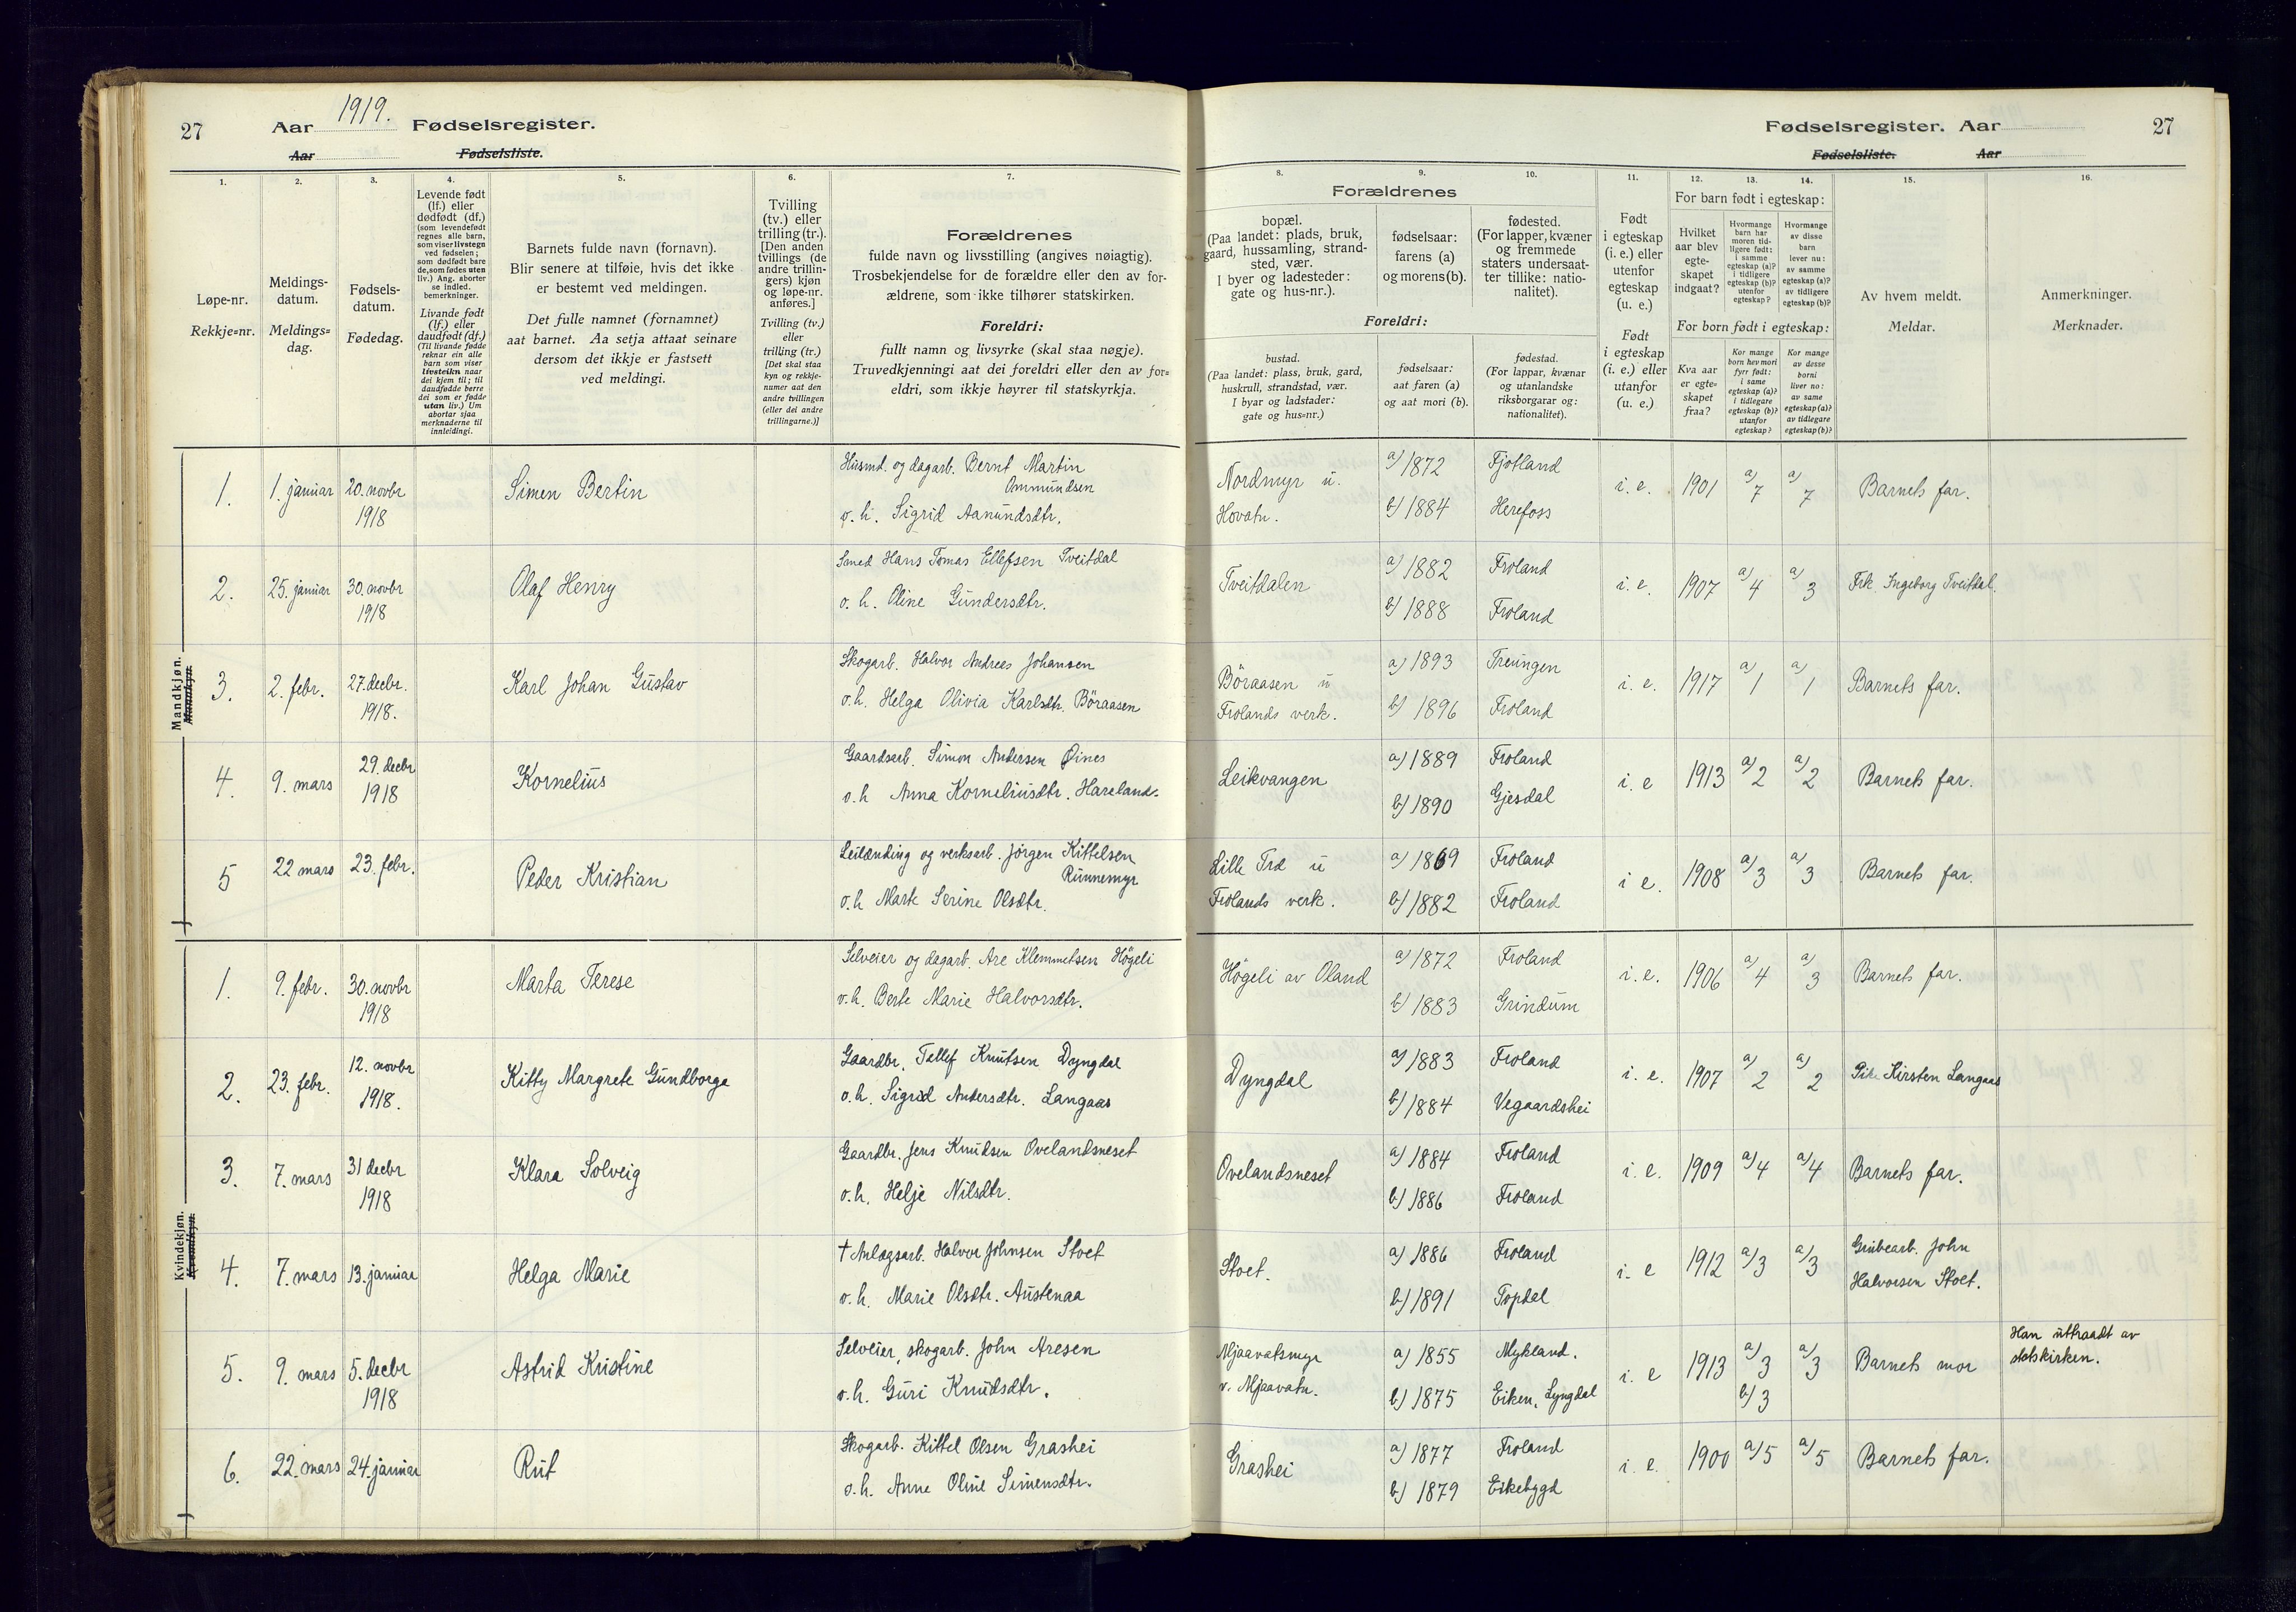 27
Aar 1919. Fødselsregister.
Aar Fødselsliste.
Fødselsregister. Aar 27
Fødselsliste. Aar
1. 2. 3. 4. 5. 6. 7. 8. 9. 10. 11. 12. 13. 14. 15. 16.
Løpe-nr.
Rekkje=nr.
Meldings-
datum.
Meldings=
dag.
Fødsels-
datum.
Fødedag.
Levende født
(lf.) eller
dødfødt (df.)
(som levendefødt
regnes alle barn,
som viser livstegn
ved fødselen;
som dødfødt bare
de, som fødes uten
liv.) Ang. aborter
se indled.
bemerkninger.
Livande født
(lf.) eller
daudfødt (df.)
(Til livande fødde
reknar ein alle
barn som viser
livsteikn naar
dei kjem til; til
daudfødde berre
dei som er fødde
utan liv.) Um
abortar sjaa
merknaderne til
innleidingi.
Barnets fulde navn (fornavn).
Blir senere at tilføie, hvis det ikke
er bestemt ved meldingen.
Det fulle namnet (fornamnet)
aat barnet. Aa setja attaat seinare
dersom det ikkje er fastsett
ved meldingi.
Tvilling
(tv.) eller
trilling (tr.).
[Den anden
tvillings (de
andre trillin-
gers) kjøn
og løpe-nr.
anføres.]
Tvilling (tv.)
eller
trilling (tr.)
[Det skal staa
kyn og rekkje-
numer aat den
andre tvillingen
(eller dei andre
trillingarne.)]
Forældrenes
fulde navn og livsstilling (angives nøiagtig).
Trosbekjendelse for de forældre eller den av for-
ældrene, som ikke tilhører statskirken.
Foreldri:
fullt namn og livsyrke (skal staa nøgje).
Truvedkjenningi aat dei foreldri eller den av for=
eldri, som ikkje høyrer til statskyrkja.
Forældrenes
bopæl.
(Paa landet: plads, bruk,
gaard, hussamling, strand-
sted, vær.
I byer og ladesteder:
gate og hus-nr.).
fødselsaar:
farens (a)
og morens (b).
fødested.
(For lapper, kvæner
og fremmede
staters undersaat-
ter tillike: natio-
nalitet).
Foreldri:
bustad.
(Paa landet: plass, bruk, gard,
huskrull, strandstad, vær.
I byar og ladstader:
gate og hus=nr.)
fødselsaar:
aat faren (a)
og aat mori (b).
fødestad.
(For lappar, kvænar
og utanlandske
riksborgarar og:
nationalitet).
Født
i egteskap
(i. e.) eller
utenfor
egteskap
(u. e.)
Født
i egteskap
(i. e.) eller
utanfor
(u. e.)
For barn født i egteskap:
Hvilket
aar blev
egte-
skapet
indgaat?
Hvormange
barn har
moren tid-
ligere født:
i samme
egteskap (a)?
i tidligere
egteskap (b)?
utenfor
egteskap?
Hvormange
av disse
barn
lever nu:
av samme
egteskap (a)?
av tidligere
egteskap (b)?
For born født i egteskap:
Kva aar
er egte=
skapet
fraa?
Kor mange
born hev mori
fyrr født:
i same
egteskap (a)?
i tidlegare
egteskap (b)?
utanfor
egteskap?
Kor mange
av desse
borni
liver no:
av same
egteskap (a)?
av tidlegare
egteskap (b)?
Av hvem meldt.
Meldar.
Anmerkninger.
Merknader.
Mandkjøn.
Mannkyn.
1. 1. januar 20. novbr 1918 Simen Bertin
Husmd. og dagarb. Bernt Martin
Ommundsen
o. h. Sigrid Aanundsdtr.
Nordmyr u.
Hovatn.
a) 1872 Fjotland
b) 1884 Herefoss
i. e. 1901 a) 7 a) 7 Barnets far.
2. 25. januar 30. novbr 1918 Olaf Henry
Smed Hans Tomas Ellefsen Tveitdal
o. h. Oline Gundersdtr.
Tveitdalen
a) 1882 Froland
b) 1888 Froland
i. e. 1907 a) 4 a) 3 Frk. Ingeborg Tveitdal.
3. 2. febr. 27. decbr. 1918. Karl Johan Gustav
Skogarb. Halvor Andreas Johansen
o. h. Helga Olivia Karlsdtr. Böraasen
Böraasen u
Frolands verk.
a) 1893 Treungen
b) 1896 Froland
i. e. 1917 a) 1 a) 1 Barnets far.
4. 9. mars 29. decbr 1918 Kornelius
Gaardsarb. Simon Andersen Öines
o. h Anna Korneliusdtr. Hareland.
Leikvangen
a) 1889 Froland
b) 1890 Gjesdal
i. e 1913 a) 2 a) 2 Barnets far.
5 22 mars 23. febr. Peder Kristian
Leilænding og verksarb. Jörgen Kittelsen
Runnemyr
o. h Marte Serine Olsdtr.
Lille Trd u
Frolands verk.
a) 1869 Froland
b) 1882 Froland
i e. 1908 a) 3 a) 3 Barnets far.
Kvindekjøn.
Kvendkyn.
1. 9. febr. 30. novbr 1918 Marta Terese
Selveier og dagarb. Are Klemmetsen Högeli
o. h. Berte Marie Halvorsdtr.
Högeli av Oland
a) 1872 Froland
b) 1883 Grindum
i. e. 1906 a) 4 a) 3 Barnets far.
2. 23. febr. 12. novbr 1918. Kitty Margrete Gundborge
Gaardbr. Tellef Knutsen Dyngdal
o. h. Sigrid Andersdtr. Langaas
Dyngdal
a) 1883 Froland
b) 1884 Vegaardshei
i. e. 1907 a) 2 a) 2 Pike Kirsten Langaas
3. 7. mars 31 decbr 1918 Klara Solveig
Gaardbr. Jens Knudsen Ovelandsneset
o. h. Helje Nilsdtr.
Ovelandsneset
a) 1884 Froland
b) 1886 Froland
i. e. 1909 a) 4 a) 4 Barnets far.
4. 7. mars 13. januar Helga Marie
† Anlægsarb. Halvor Johnsen Stoet
o. h. Marie Olsdtr. Austenaa
Stoet.
a) 1886 Froland
b) 1891 Topdal
i. e 1912 a) 3 a) 3 Grubearb. John
Halvorsen Stoet.
5. 9. mars 5. decbr 1918 Astrid Kristine
Selveier, skogarb. John Aresen
o. h. Guri Knudsdtr.
Mjaavatsmyr
v. Mjaavatn.
a) 1855 Mykland.
b) 1875 Eiken, Lyngdal
i. e 1913 a) 3 b) 3 a) 3 Barnets mor
Han uttraadt av
statskirken.
6. 22. mars 24. januar Rut
Skogarb. Kittel Olsen Grashei
o. h. Anne Oline Simensdtr.
Grashei
a) 1877 Froland
b) 1879 Eikebygd
i. e. 1900 a) 5 a) 5 Barnets far.